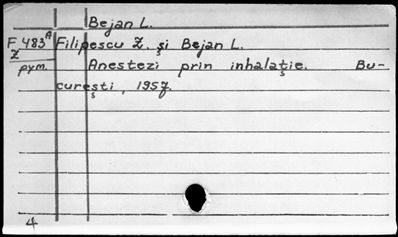 Bejan L.
F 483A Filipescu Z. şi Bejan L.
Z
pym. Anestezi prin inhalaţie. Bu-
cureşti, 1957.
4